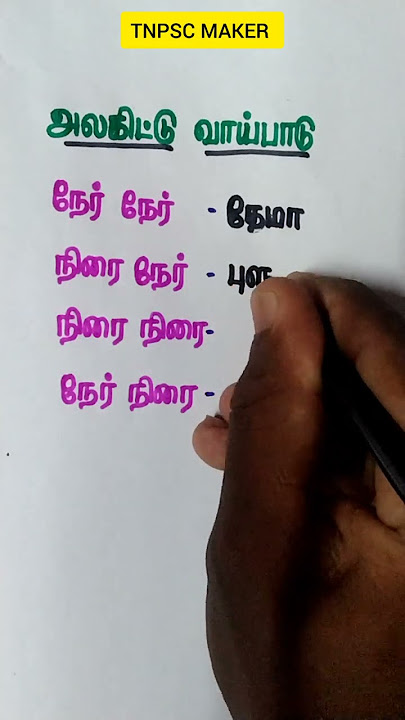 TNPSC MAKER
அலகிட்டு வாய்பாடு
நேர் நேர் - தேமா
நிரை நேர் - புள
நிரை நிரை-
நேர் நிரை -